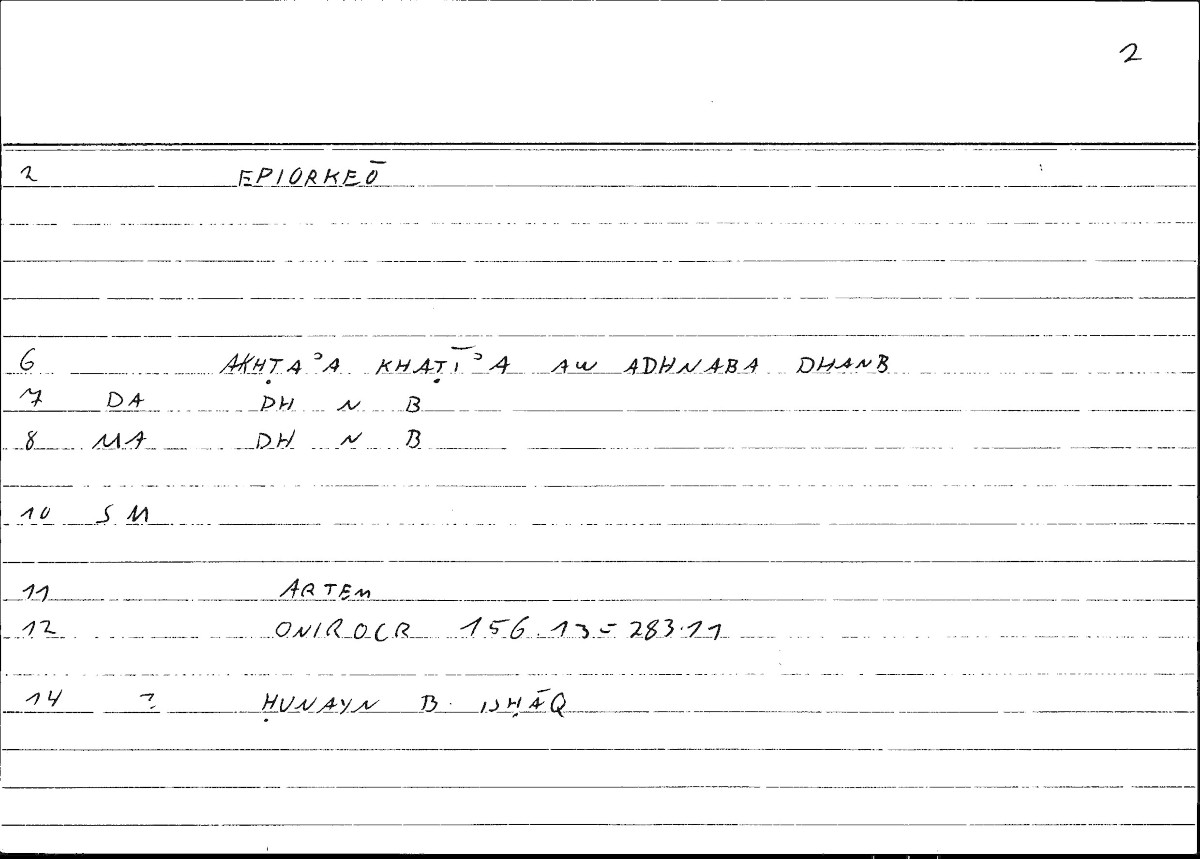 2
2 EPIORKEŌ
6 AKHṬAʾA KHAṬĪʾA AW ADHNABA DHANB
7 DA DH N B
8 MA DH N B
10 SM
11 ARTEM
12 ONIROCR 156.13=283.11
14 ? ḤUNAYN B. ISḤĀQ